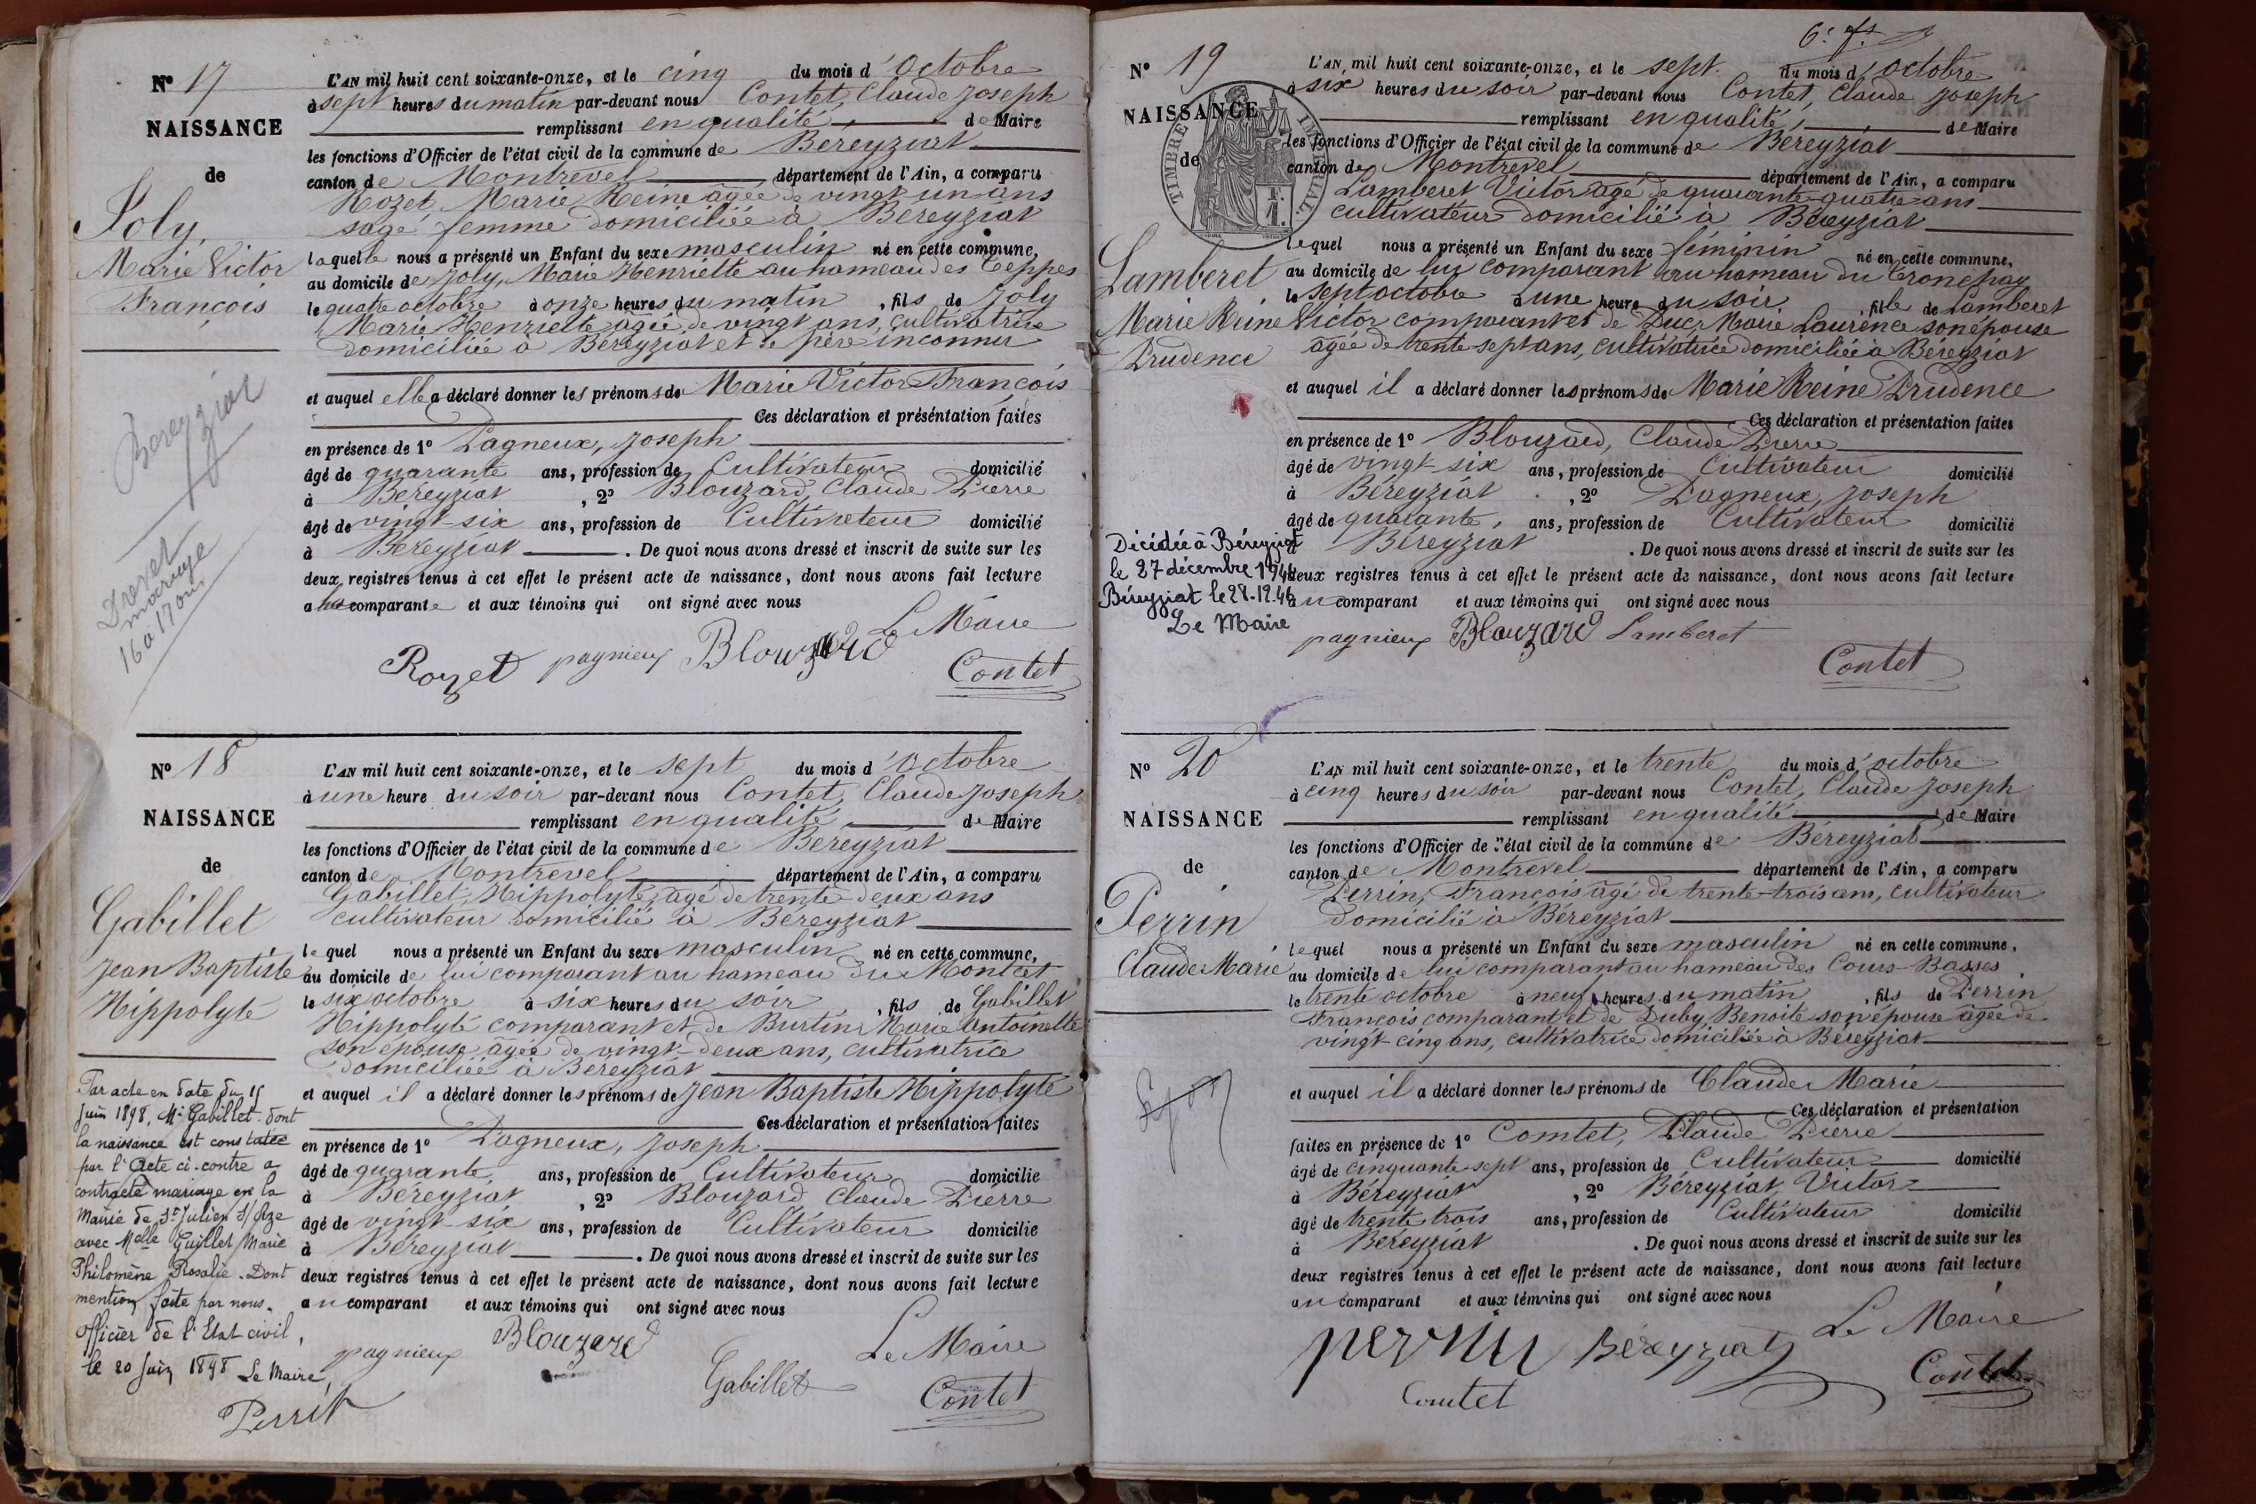 N° 17
NAISSANCE
de
Joly,
Marie Victor
François
Bereyziat
Drevet
mariage
16 à 17 ans
L'AN mil huit cent soixante-onze, et le cinq du mois d'octobre
à sept heures du matin par-devant nous Contet, Claude Joseph
remplissant en qualité de Maire
les fonctions d'Officier de l'état civil de la commune de Béreyziat
canton de Montrevel département de l'Ain, a comparu
Rozet, Marie Reine âgée de vingt un ans
sage femme domiciliée à Béreyziat
laquelle nous a présenté un Enfant du sexe masculin né en cette commune,
au domicile de Joly, Marie Henriette au hameau des Teppes
le quatre octobre à onze heures du matin, fils de Joly
Marie Henriette âgée de vingt ans, cultivatrice
domiciliée à Béreyziat et de père inconnu
et auquel elle a déclaré donner les prénoms de Marie Victor François
Ces déclaration et présentation faites
en présence de 1° Pagneux, Joseph
âgé de quarante ans, profession de Cultivateur domicilié
à Béreyziat, 2° Blouzard, Claude Pierre
âgé de vingt-six ans, profession de Cultivateur domicilié
à Béreyziat. De quoi nous avons dressé et inscrit de suite sur les
deux registres tenus à cet effet le présent acte de naissance, dont nous avons fait lecture
a la comparante et aux témoins qui ont signé avec nous
Le Maire
Rozet pagnieux Blouzard
Contet
N° 18
NAISSANCE
de
Gabillet
Jean Baptiste
Hippolyte
Par acte en date du 15
Juin 1898, Mr Gabillet dont
la naissance est constatée
par l'acte ci-contre a
contracté mariage en la
Mairie de St Julien s/ Rze
avec Melle Guillet Marie
Philomène Rosalie. Dont
mention faite par nous.
Officier de l'Etat civil,
le 20 Juin 1898 Le Maire,
Perrin
L'AN mil huit cent soixante-onze, et le sept du mois d'octobre
à une heure du soir par-devant nous Contet, Claude Joseph
remplissant en qualité de Maire
les fonctions d'Officier de l'état civil de la commune de Béreyziat
canton de Montrevel département de l'Ain, a comparu
Gabillet, Hippolyte, âgé de trente-deux ans
cultivateur domicilié à Béreyziat
lequel nous a présenté un Enfant du sexe masculin né en cette commune,
au domicile de lui comparant au hameau du Montcet
le six octobre à six heures du soir, fils de Gabillet
Hippolyte comparant et de Burtin Marie Antoinette
son épouse, âgée de vingt-deux ans, cultivatrice
domiciliée à Béreyziat
et auquel il a déclaré donner les prénoms de Jean Baptiste Hippolyte
Ces déclaration et présentation faites
en présence de 1° Pagneux, Joseph
âgé de quarante ans, profession de Cultivateur domicilié
à Béreyziat, 2° Blouzard, Claude Pierre
âgé de vingt-six ans, profession de Cultivateur domicilié
à Béreyziat. De quoi nous avons dressé et inscrit de suite sur les
deux registres tenus à cet effet le présent acte de naissance, dont nous avons fait lecture
au comparant et aux témoins qui ont signé avec nous
pagnieux Blouzard Le Maire
Gabillet Contet
6e ft
N° 19
NAISSANCE
de
TIMBRE IMPERIAL
1 F.
Lamberet
Marie Reine
Prudence
Décédée à Béreyziat
le 27 décembre 1946
Béreyziat le 28.12.46
Le Maire
L'AN mil huit cent soixante-onze, et le sept du mois d'octobre
à six heures du soir par-devant nous Contet, Claude Joseph
remplissant en qualité de Maire
les fonctions d'Officier de l'état civil de la commune de Béreyziat
canton de Montrevel département de l'Ain, a comparu
Lamberet Victor âgé de quarante-quatre ans
cultivateur domicilié à Béreyziat
lequel nous a présenté un Enfant du sexe féminin né en cette commune,
au domicile de lui comparant au hameau du Tronchay
le sept octobre à une heure du soir fille de Lamberet
Victor comparant et de Duc, Marie Laurence son épouse
âgée de trente-sept ans, cultivatrice domiciliée à Béreyziat
et auquel il a déclaré donner les prénoms de Marie Reine Prudence
Ces déclaration et présentation faites
en présence de 1° Blouzard, Claude Pierre
âgé de vingt-six ans, profession de Cultivateur domicilié
à Béreyziat, 2° Pagneux, Joseph
âgé de quarante, ans, profession de Cultivateur domicilié
à Béreyziat. De quoi nous avons dressé et inscrit de suite sur les
deux registres tenus à cet effet le présent acte de naissance, dont nous avons fait lecture
au comparant et aux témoins qui ont signé avec nous
pagnieux Blouzard Lamberet
Contet
N° 20
NAISSANCE
de
Perrin
Claude Marie
L'AN mil huit cent soixante-onze, et le trente du mois d'octobre
à cinq heures du soir par-devant nous Contet, Claude Joseph
remplissant en qualité de Maire
les fonctions d'Officier de l'état civil de la commune de Béreyziat
canton de Montrevel département de l'Ain, a comparu
Perrin, François âgé de trente-trois ans, cultivateur
domicilié à Béreyziat
lequel nous a présenté un Enfant du sexe masculin né en cette commune,
au domicile de lui comparant au hameau des Cours-Basses
le trente octobre à neuf heures du matin, fils de Perrin
François comparant et de Duby Benoite son épouse âgée de
vingt-cinq ans, cultivatrice domiciliée à Béreyziat
et auquel il a déclaré donner les prénoms de Claude Marie
Ces déclaration et présentation
faites en présence de 1° Comtet, Claude Pierre
âgé de cinquante-sept ans, profession de Cultivateur domicilié
à Béreyziat, 2° Béreyziat, Victor
âgé de trente trois ans, profession de Cultivateur domicilié
à Béreyziat. De quoi nous avons dressé et inscrit de suite sur les
deux registres tenus à cet effet le présent acte de naissance, dont nous avons fait lecture
au comparant et aux témoins qui ont signé avec nous
perrin Béreyziat Le Maire
Comtet Contet